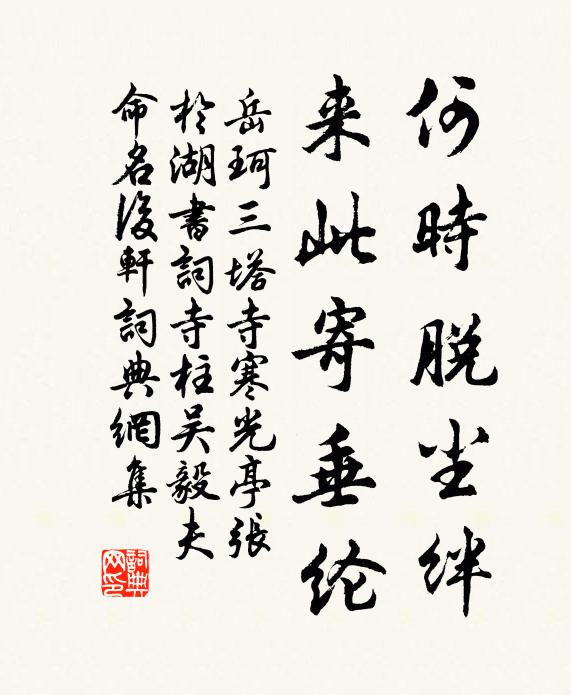 何時脫尘絆
来此寄垂纶
岳珂三塔寺寒光亭張
於湖書詞寺柱吴毅夫
命名後軒詞典網集
詞典
网印